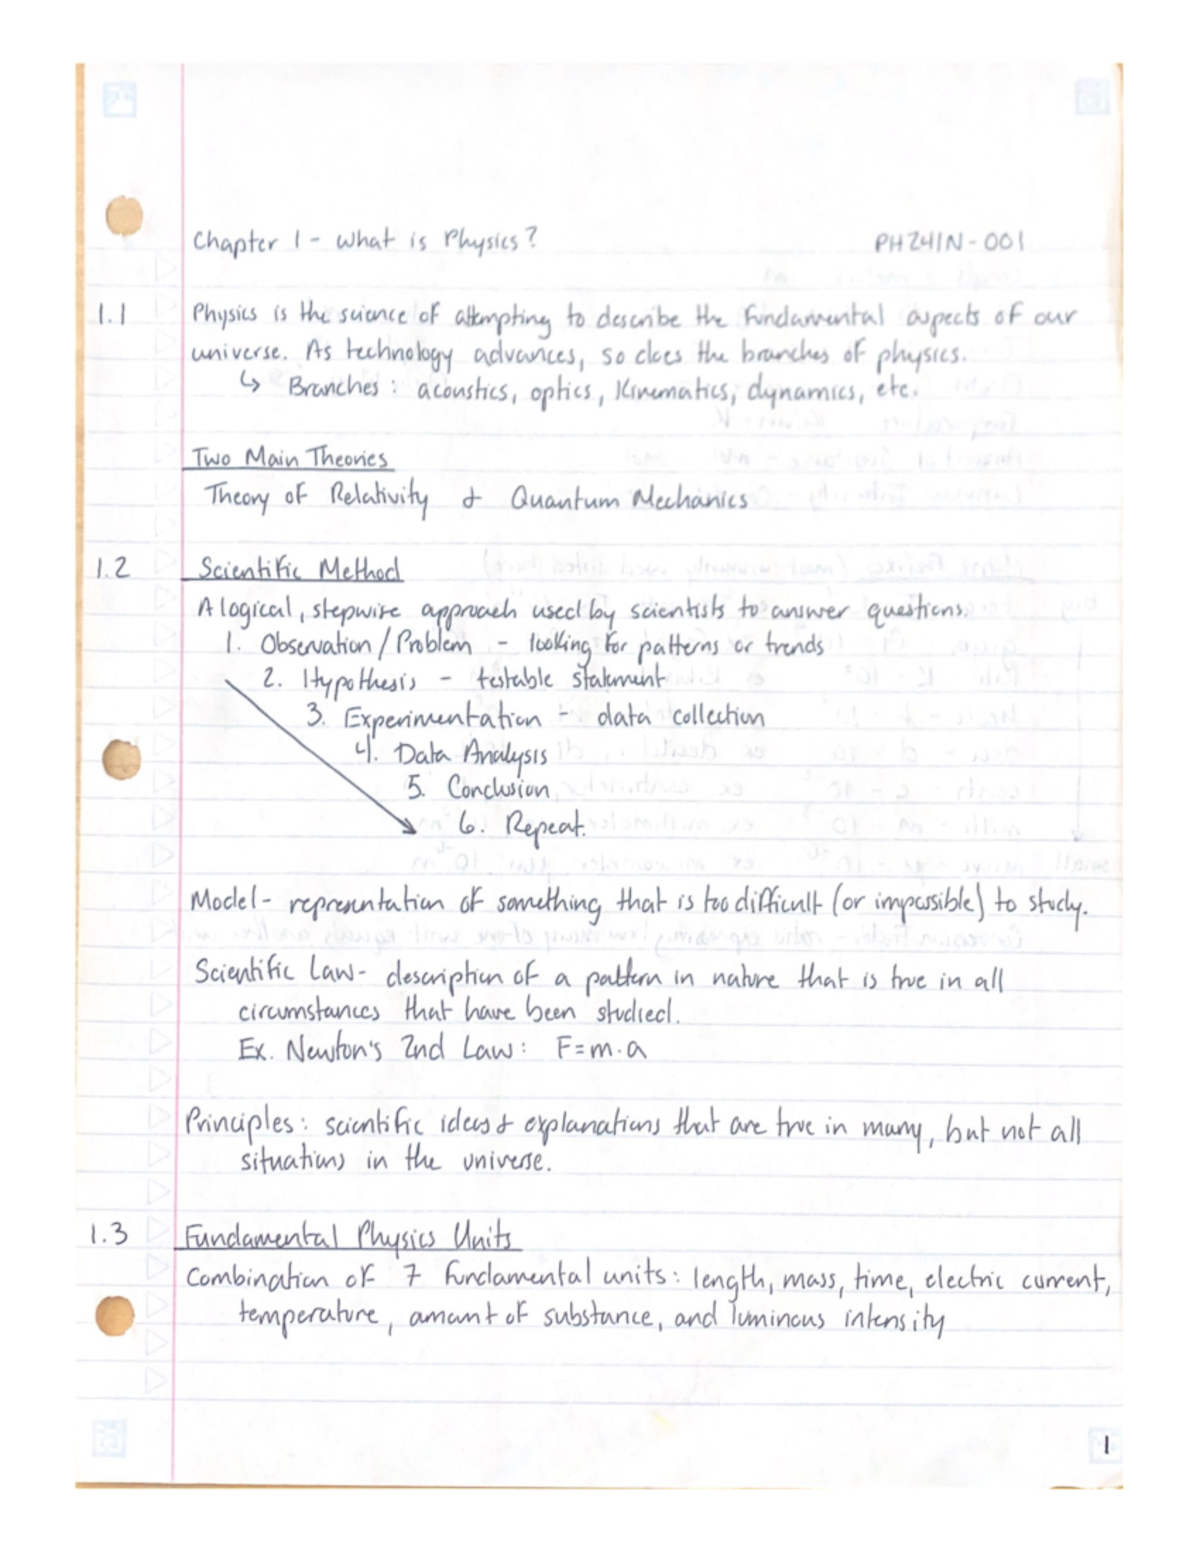 Chapter 1 - What is Physics? PHZ41N-001
1.1 Physics is the science of attempting to describe the fundamental aspects of our
universe. As technology advances, so does the branches of physics.
↳ Branches: acoustics, optics, Kinematics, dynamics, etc.
Two Main Theories
Theory of Relativity & Quantum Mechanics
1.2 Scientific Method
A logical, stepwise approach used by scientists to answer questions.
1. Observation / Problem - looking for patterns or trends
2. Hypothesis - testable statement
3. Experimentation - data collection
4. Data Analysis
5. Conclusion
6. Repeat.
Model - representation of something that is too difficult (or impossible) to study.
Scientific Law - description of a pattern in nature that is true in all
circumstances that have been studied.
Ex. Newton's 2nd Law: F=m·a
Principles: scientific ideas & explanations that are true in many, but not all
situations in the universe.
1.3 Fundamental Physics Units
Combination of 7 fundamental units: length, mass, time, electric current,
temperature, amount of substance, and luminous intensity
1